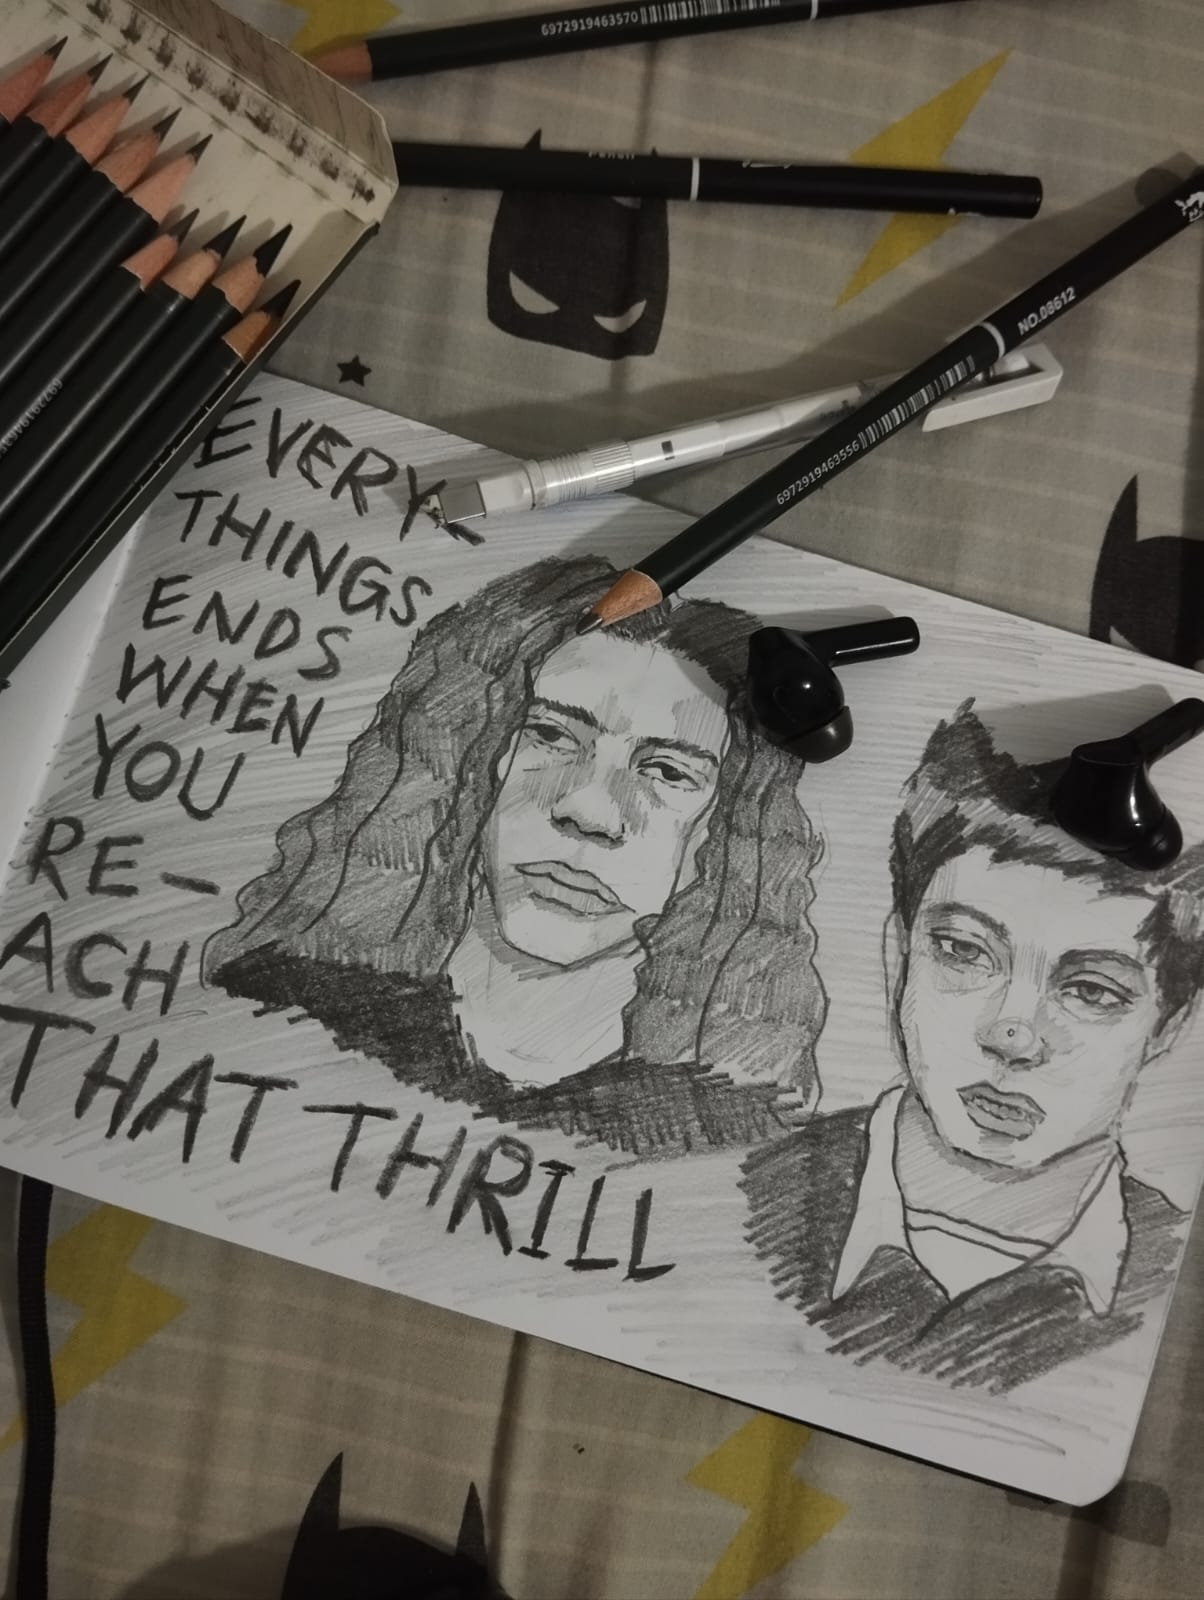 6972919463570
Pencil
NO.08612
6972919463556
EVERY-
THINGS
ENDS
WHEN
YOU
RE-
ACH
THAT THRILL